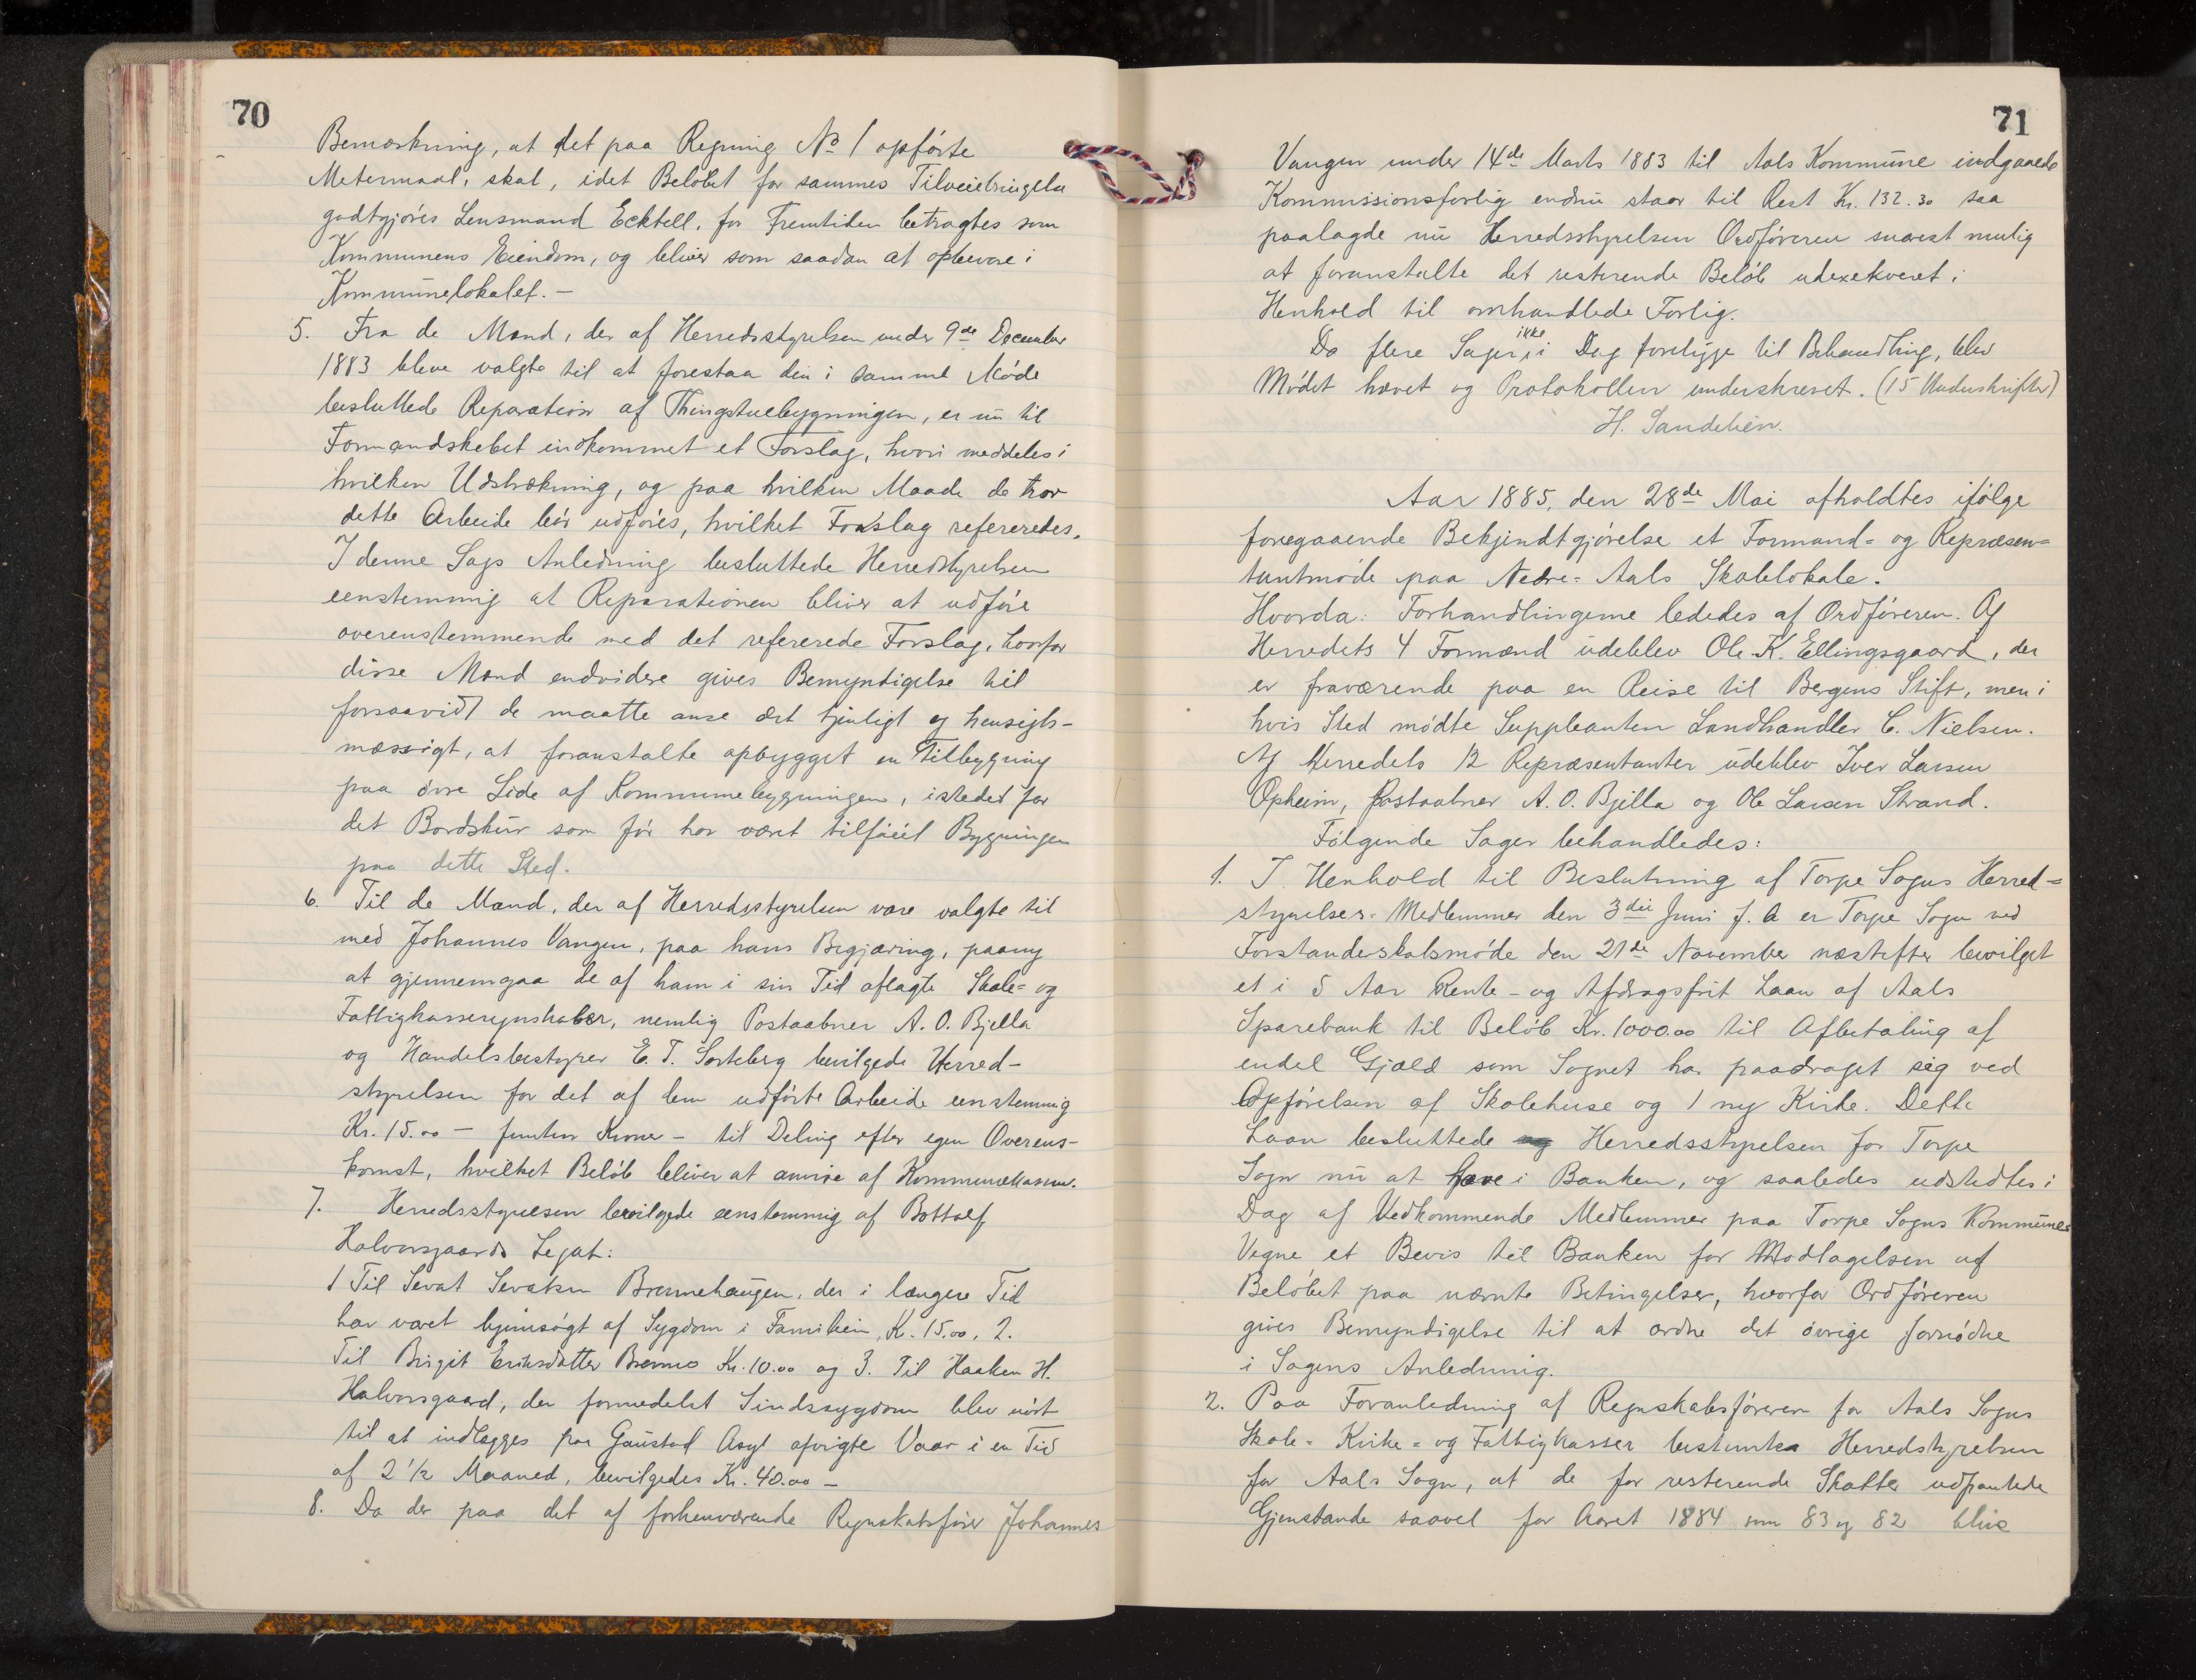 70
Bemærkning, at det paa Regning No 1 opførte
Metermaal, skal, idet Beløbet for sammes Tilveiebringelse
godtgjøres Lensmand Ecktell, for Fremtiden betragtes som
Kommunens Eiendom, og bliver som saadan at opbevare i
Kommunelokalet. -
5. Fra de Mænd, der af Herredsstyrelsen under 9de December
1883 bleve valgte til at forestaa den i samme Møde
besluttede Reparation af Thingstuebygningen, er nu til
Formandskabet indkommet et Forslag, hvori meddeles i
hvilken Udstrækning, og paa hvilken Maade de tror
dette Arbeide bør udføres, hvilket Forslag refereredes.
I denne Sags Anledning besluttede Herredstyrelsen
eenstemmig at Reparationen bliver at udføre
overensstemmende med det refererede Forslag, hvorfor
disse Mænd endvidere gives Bemyndigelse til
forsaavidt de maatte anse det tjenligt og hensigts-
mæssigt, at foranstalte opbygget en Tilbygning
paa øvre Side af Kommunebygningen, istedet for
det Bordskur som før har været tilføiet Bygningen
paa dette Sted.
6. Til de Mænd, der af Herredsstyrelsen vare valgte til
med Johannes Vangen, paa hans Begjæring, paany
at gjennemgaa de af ham i sin Tid aflagte Skole- og
Fattigkasseregnskaber, nemlig Postaabner A. O. Bjella
og Handelsbestyrer E. T. Sorteberg bevilgede Herred-
styrelsen for det af dem udførte Arbeide eenstemmig
Kr. 15.00 - femten Kroner - til Deling efter egen Overens-
komst, hvilket Beløb bliver at anvise af Kommunekassen.
7. Herredsstyrelsen bevilgede eenstemmig af Bottolf
Halvorsgaards Legat:
1 Til Sevat Sevatsen Brennehaugen, der i længere Tid
har været hjemsøgt af Sygdom i Familien, Kr. 15.00, 2.
Til Birgit Eriksdatter Brenno Kr. 10.00 og 3. Til Haaken H.
Halvorsgaard, der formedelst Sindssygdom blev nødt
til at indlægges paa Gaustad Asyl afvigte Vaar i en Tid
af 2 1/2 Maaned, bevilgedes Kr. 40.00 -
8. Da der paa det af forhenværende Regnskabsfører Johannes
71
Vangen under 14de Marts 1883 til Aals Kommune indgaaede
Kommissionsforlig endnu staar til Rest Kr. 132.30 saa
paalagde nu Herredsstyrelsen Ordføreren snarest mulig
at foranstalte det resterende Beløb udexekveret i
Henhold til omhandlede Forlig.
Da flere Sager ikke i Dag foreligge til Behandling, blev
Mødet hævet og Protokollen underskrevet. (15 Underskrifter)
H. Sandelien.
Aar 1885, den 28de Mai afholdtes ifølge
foregaaende Bekjendtgjørelse et Formand- og Repræsen-
tantmøde paa Nedre-Aals Skolelokale.
Hvorda: Forhandlingerne lededes af Ordføreren. Af
Herredets 4 Formænd udeblev Ole K. Ellingsgaard, der
er fraværende paa en Reise til Bergens Stift, men i
hvis Sted mødte Suppleanten Landhandler C. Nielsen.
Af Herredets 12 Repræsentanter udeblev Iver Larsen
Opheim, Postaabner A. O. Bjella og Ole Larsen Strand.
Følgende Sager behandledes:
1. I Henhold til Beslutning af Torpe Sogns Herred-
styrelses-Medlemmer den 3die Juni f. A er Torpe Sogn ved
Forstanderskabsmøde den 21de November næstefter bevilget
et i 5 Aar Rente- og Afdragsfrit Laan af Aals
Sparebank til Beløb Kr. 1000.00 til Afbetaling af
endel Gjæld som Sognet har paadraget sig ved
Opførelsen af Skolehuse og 1 ny Kirke. Dette
Laan besluttede Herredsstyrelsen for Torpe
Sogn nu at hæve i Banken, og saaledes udstedtes i
Dag af Vedkommende Medlemmer paa Torpe Sogns Kommunes
Vegne et Bevis til Banken for Modtagelsen af
Beløbet paa nævnte Betingelser, hvorfor Ordføreren
gives Bemyndigelse til at ordne det øvrige fornødne
i Sagens Anledning.
2. Paa Foranledning af Regnskabsføreren for Aals Sogns
Skole- Kirke- og Fattigkasser bestemte Herredstyrelsen
for Aals Sogn, at de for resterende Skatter udpantede
Gjenstande saavel for Aaret 1884 som 83 og 82 blive